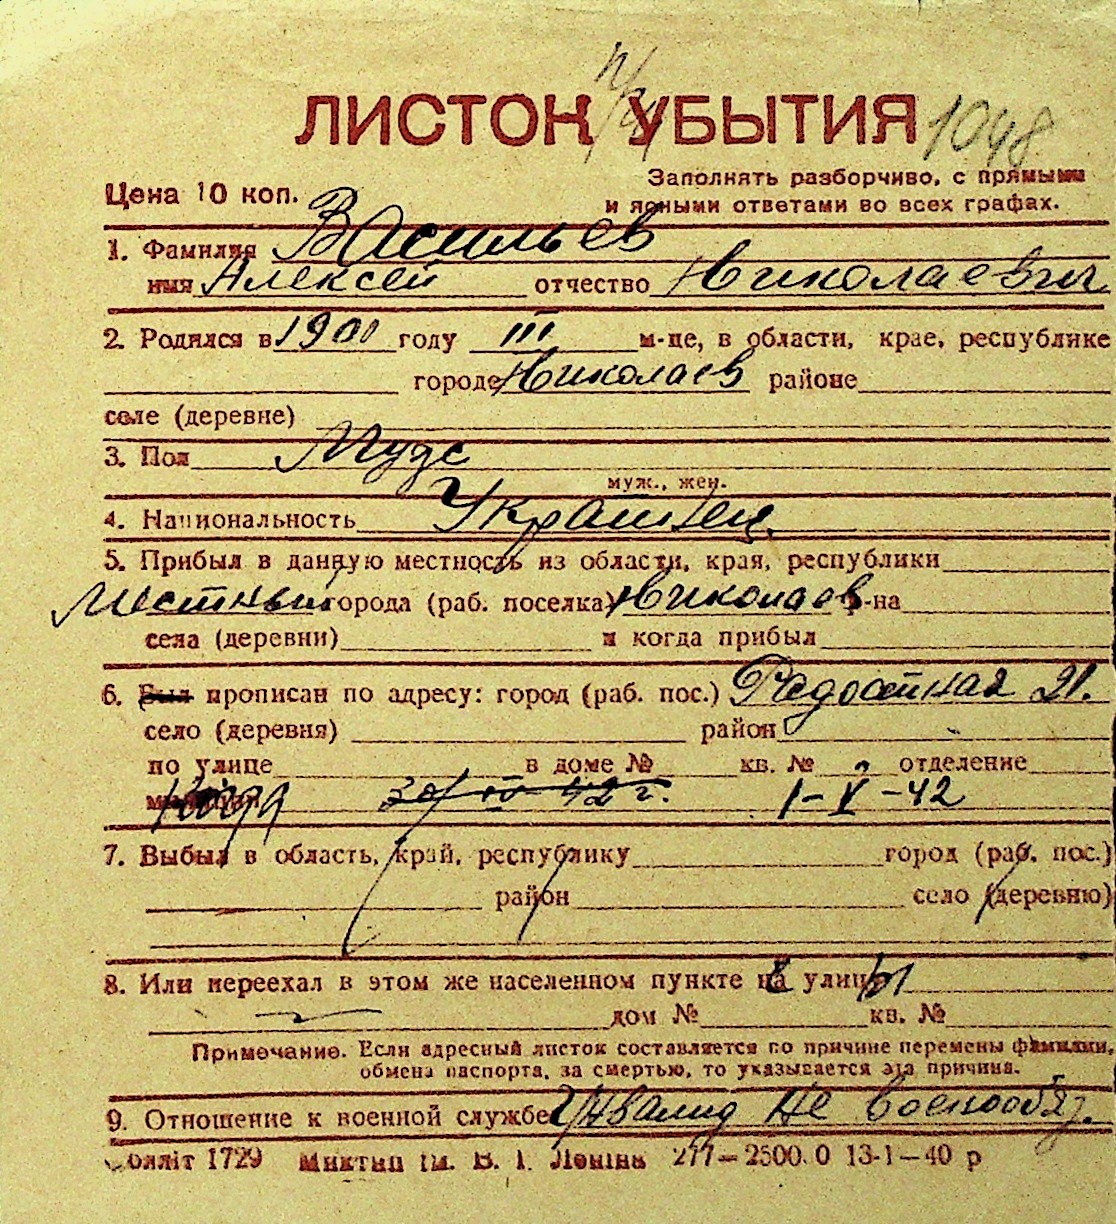 ЛИСТОК УБЫТИЯ 1048
Заполнять разборчиво, с прямыми
Цена 10 коп.
и ясными ответами во всех графах.
1. Фамилия Васильев
имя Алексей отчество Николаевич
2. Родился в 1900 году III м-це, в области, крае, республике
городе Николаев районе
селе (деревне)
3. Пол Мудс
муж., жен.
4. Национальность Украинец
5. Прибыл в данную местность из области, края, республики
Местный города (раб. поселка) Николаев р-на
села (деревни) и когда прибыл
6. Был прописан по адресу: город (раб. пос.) Радостная 21.
село (деревня) район
по улице в доме № кв. № отделение
милиции когда 30/IV-42 г. 1-V-42
7. Выбыл в область, край, республику город (раб. пос.)
район село (деревню)
8. Или переехал в этом же населенном пункте с улицы
дом № кв. №
Примечание. Если адресный листок составляется по причине перемены фамилии,
обмена паспорта, за смертью, то указывается эта причина.
9. Отношение к военной службе Инвалид не военнообяз.
Обллiт 1729 Миктип iм. В. I. Ленiна 277—2500.0 13-1—40 р